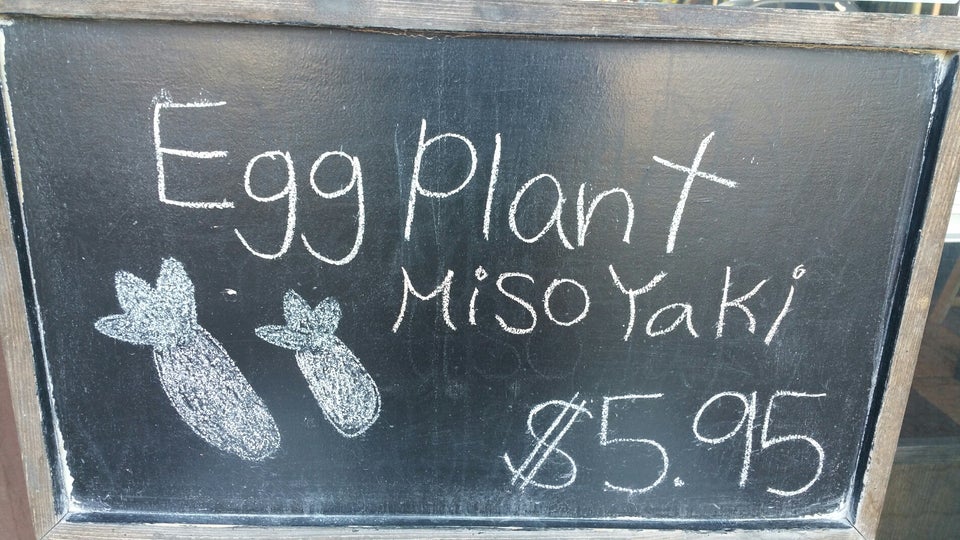 Egg Plant
Miso Yaki
$5.95